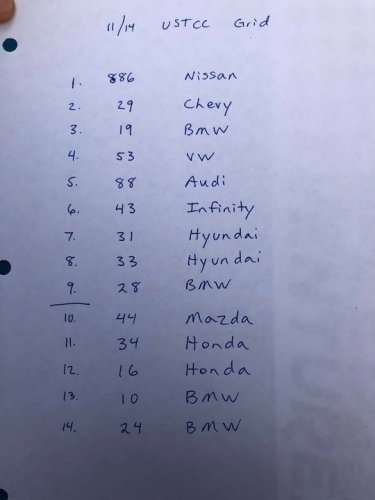 11/14 USTCC Grid
1. 886 Nissan
2. 29 Chevy
3. 19 BMW
4. 53 VW
5. 88 Audi
6. 43 Infinity
7. 31 Hyundai
8. 33 Hyundai
9. 28 BMW
10. 44 Mazda
11. 34 Honda
12. 16 Honda
13. 10 BMW
14. 24 BMW